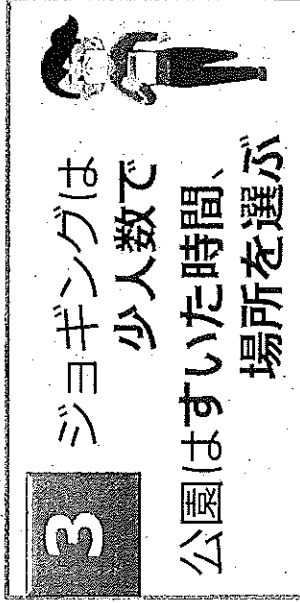 3
ジョギングは
少人数で
公園はすいた時間、
場所を選ぶ